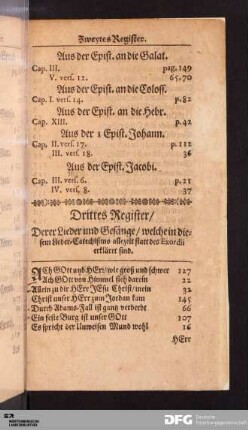 Zweytes Register.
Aus der Epist. an die Galat.
Cap. III. pag. 149
V. vers. 12. 65. 70
Aus der Epist. an die Coloss.
Cap. I. vers. 14. p. 82
Aus der Epist. an die Hebr.
Cap. XIII. p. 42
Aus der 1 Epist. Johann.
Cap. II. vers. 17. p. 112
III. vers. 18. 36
Aus der Epist. Jacobi.
Cap. III. vers. 6. p. 21
IV. vers. 8. 37
Drittes Register/
Derer Lieder und Gesänge/ welche in die-
sem Lieder-Catechismo allezeit statt des Exordii
erkläret sind.
ACh GOtt und HErr/ wie groß und schwer 127
Ach GOtt von Himmel sieh darein 22
Allein zu dir HErr JEsu Christ/ mein 32
Christ unser HErr zum Jordan kam 145
Durch Adams-Fall ist gantz verderbt 66
Ein feste Burg ist unser GOtt 107
Es spricht der Unweisen Mund wohl 16
HErr
WÜRTTEMBERGISCHE
LANDESBIBLIOTHEK
DFG
Deutsche
Forschungsgemeinschaft